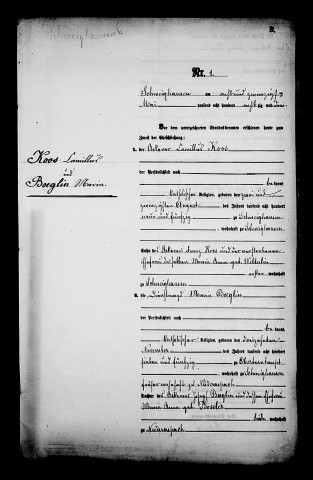 Schweighausen
B.
Nr. 1.
Schweighausen am acht und zwanzigsten
Mai tausend acht hundert achtzig und
Vor dem unterzeichneten Standesbeamten erschienen heute zum
Zwecke der Eheschließung:
1. der Ackerer Camillus Koos
Koos Camillus
und
Boeglin Maria
der Persönlichkeit nach
kannt,
katholischer Religion, geboren den zwei und
zwanzigsten August des Jahres tausend acht hundert
neun und fünfzig zu Schweighausen
, wohnhaft zu Schweighausen
Sohn des Ackerers Franz Koos und der verstorbenen
Ehefrau desselben Maria Anna geb. Wilhelm
wohnhaft
zu Schweighausen
2. die Maria Boeglin
der Persönlichkeit nach
kannt,
katholischer Religion, geboren den dreizehnten
November des Jahres tausend acht hundert
sieben und fünfzig zu
, wohnhaft zu Schweighausen
früher wohnhaft zu Niederaspach
Tochter des Ackerers Boeglin und dessen Ehefrau
Maria Anna geb.
beide wohnhaft
zu Niederaspach